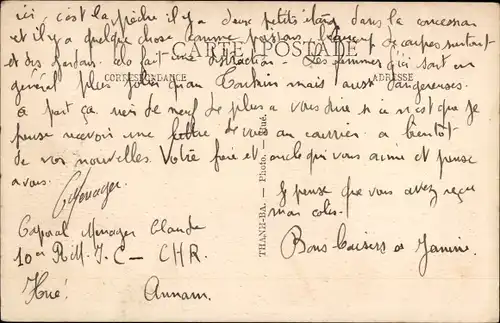 ici, c'est la pêche il y a deux petits étang dans la concession
et il y a quelque chose comme poissons, beaucoup de carpes surtout
CARTE POSTALE
et des gardons. cela fait une distraction - Les femmes d'ici sont en
CORRESPONDANCE
ADRESSE
général plus jolies qu'au Tonkin mais aussi dangereuses.
a part ça rien de neuf de plus a vous dire si ce n'est que je
pense recevoir une lettre de vous au courrier a bientôt
de vos nouvelles. Votre frère et oncle qui vous aime et pense
a vous.
CMenager
Je pense que vous avez reçu
mon colis.
Caporal Menager Claude
10er R.M.I.C - CHR.
Bons baisers a Janine
Hué.
Annam.
THANH-BA. — Photo. Hué.